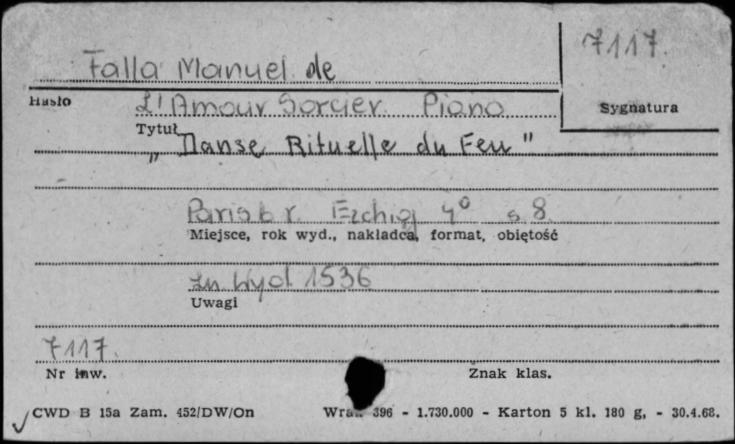 Falla Manuel de
7117.
Hasło
L'Amour Sorcier. Piano
Sygnatura
Tytuł
„Danse Rituelle du Feu"
Paris b r. Eschig 4° s 8.
Miejsce, rok wyd., nakładca, format, objętość
Zn Wyd 1536
Uwagi
7117.
Nr inw.
Znak klas.
CWD B 15a Zam. 452/DW/On
396 - 1.730.000 - Karton 5 kl. 180 g, - 30.4.68.